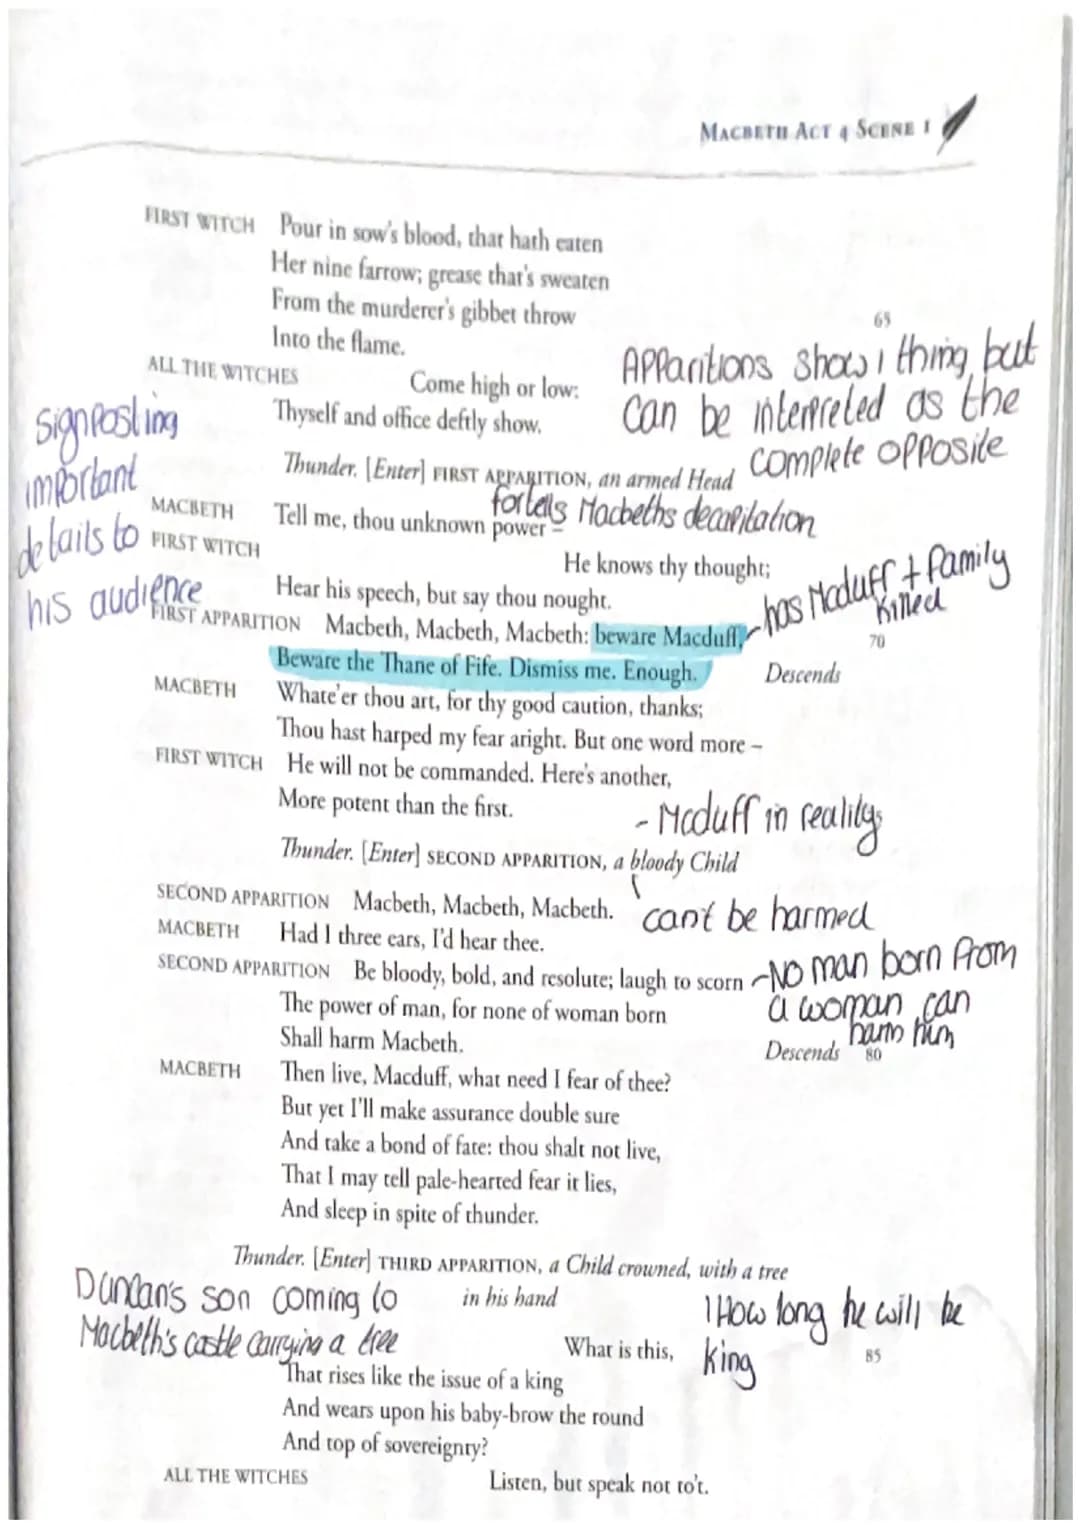 MACBETH ACT 4 SCENE 1
FIRST WITCH Pour in sow's blood, that hath eaten
Her nine farrow; grease that's sweaten
From the murderer's gibbet throw
65
Into the flame.
ALL THE WITCHES Come high or low:
Thyself and office deftly show.
Apparitions show 1 thing, but
can be interpreted as the
complete opposite
signposting
important
details to
his audience
Thunder. [Enter] FIRST APPARITION, an armed Head
fortells Macbeths decapitation
MACBETH Tell me, thou unknown power –
FIRST WITCH He knows thy thought;
Hear his speech, but say thou nought.
FIRST APPARITION Macbeth, Macbeth, Macbeth: beware Macduff,
- has Mcduff + family
killed
70
Beware the Thane of Fife. Dismiss me. Enough. Descends
MACBETH Whate'er thou art, for thy good caution, thanks;
Thou hast harped my fear aright. But one word more –
FIRST WITCH He will not be commanded. Here's another,
More potent than the first.
- Mcduff in reality
Thunder. [Enter] SECOND APPARITION, a bloody Child
SECOND APPARITION Macbeth, Macbeth, Macbeth.
can't be harmed
MACBETH Had I three ears, I'd hear thee.
SECOND APPARITION Be bloody, bold, and resolute; laugh to scorn
- No man born from
a woman can
harm him
The power of man, for none of woman born
Shall harm Macbeth. Descends 80
MACBETH Then live, Macduff, what need I fear of thee?
But yet I'll make assurance double sure
And take a bond of fate: thou shalt not live,
That I may tell pale-hearted fear it lies,
And sleep in spite of thunder.
Thunder. [Enter] THIRD APPARITION, a Child crowned, with a tree
in his hand
Duncan's son coming to
Macbeth's castle carrying a tree
How long he will be
king
What is this, 85
That rises like the issue of a king
And wears upon his baby-brow the round
And top of sovereignty?
ALL THE WITCHES Listen, but speak not to't.